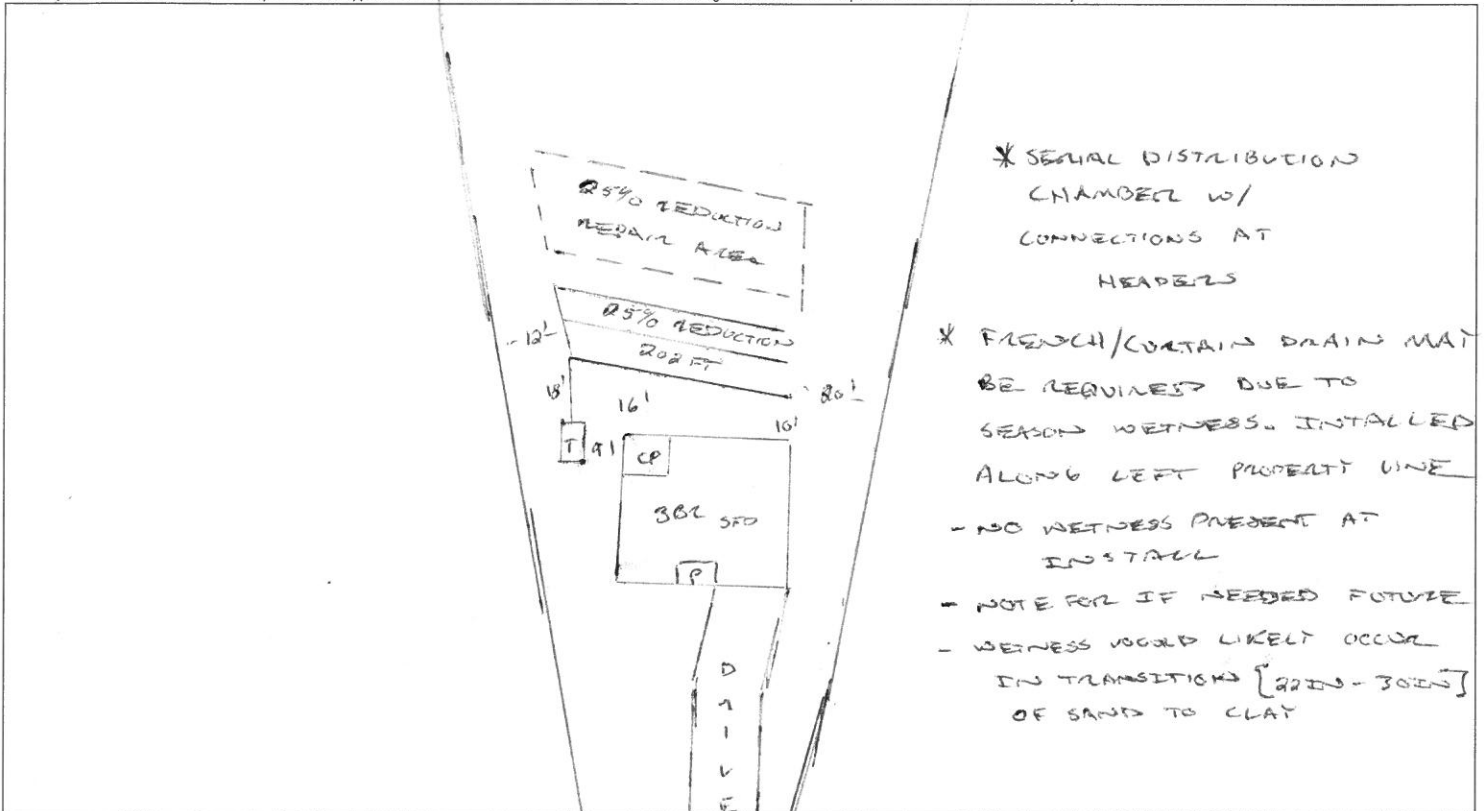 25% REDUCTION
REPAIR AREA
25% REDUCTION
202 FT
12'
18'
16'
20'
10'
T
9'
CP
3BR SFD
P
D
R
I
V
E
* SERIAL DISTRIBUTION
CHAMBER W/
CONNECTIONS AT
HEADERS
* FRENCH/CURTAIN DRAIN MAY
BE REQUIRED DUE TO
SEASON WETNESS. INTALLED
ALONG LEFT PROPERTY LINE
- NO WETNESS PRESENT AT
INSTALL
- NOTE FOR IF NEEDED FUTURE
- WETNESS WOULD LIKELY OCCUR
IN TRANSITION [22IN - 30IN]
OF SAND TO CLAY